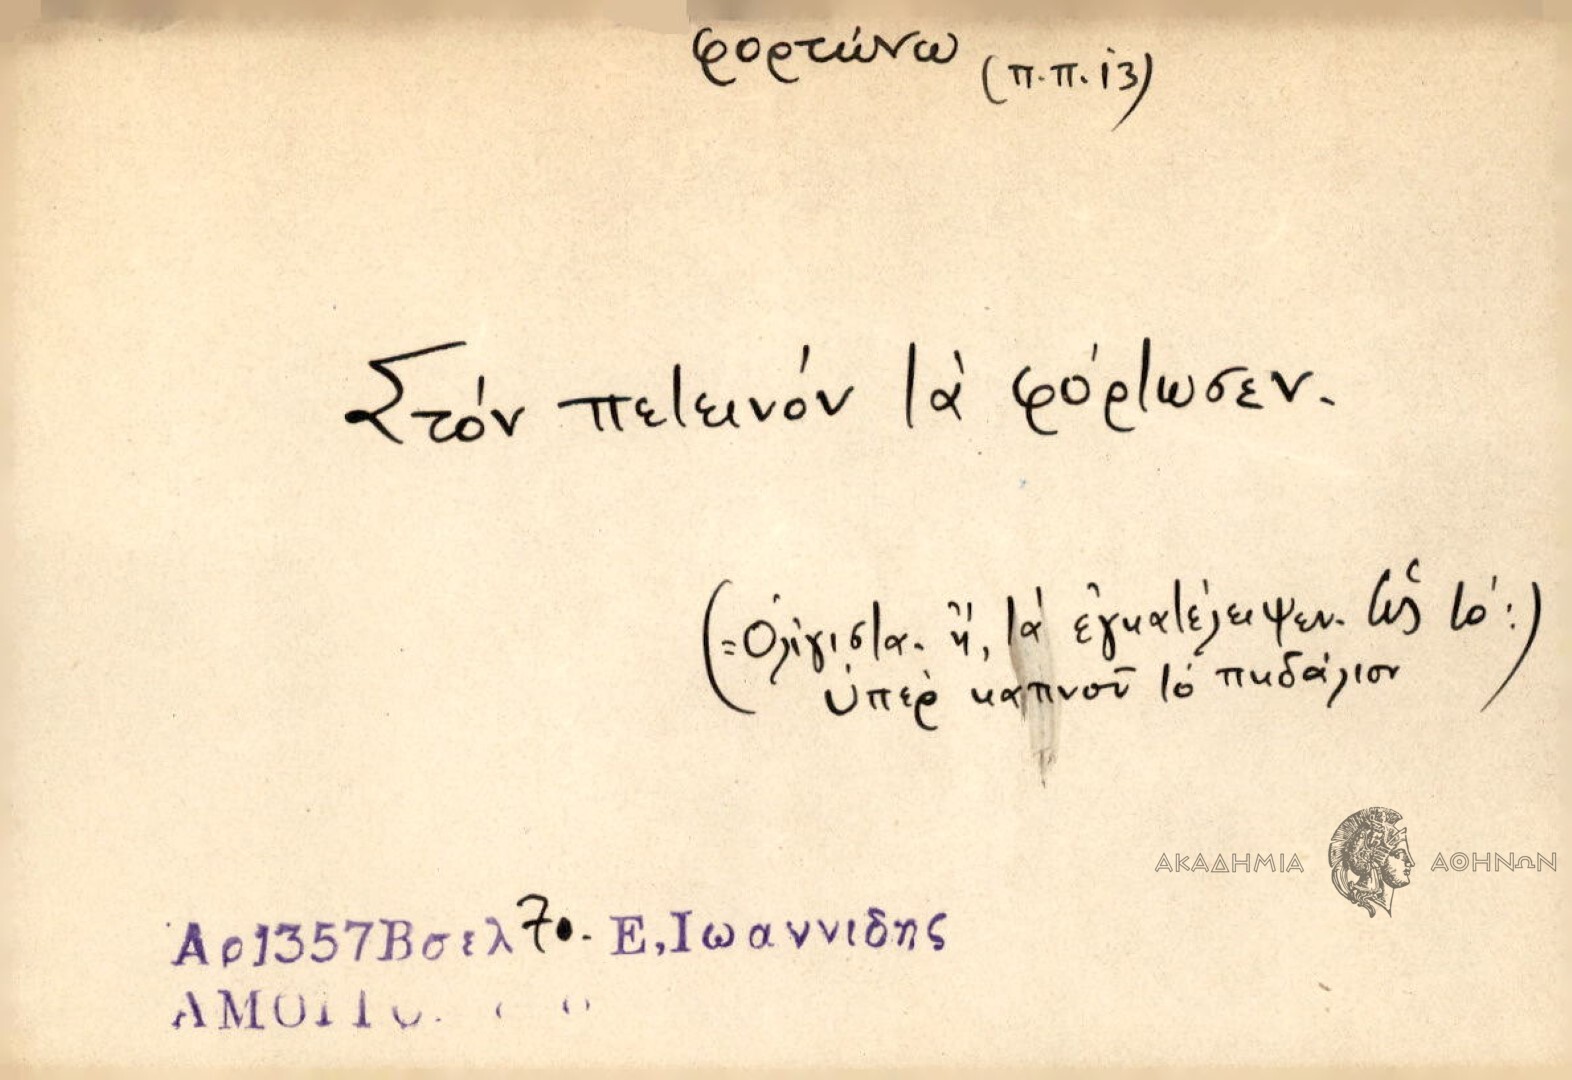 φορτώνω (π.π. ἰ3)
Στόν πετεινόν τὰ φόρτωσεν.
(=Ὀλίγιστα. ἤ, τὰ ἐγκατέλειψεν. Ὡς τό:)
ὑπὲρ καπνοῦ τό πηδάλιον
ΑΚΑΔΗΜΙΑ ΑΘΗΝΩΝ
Αρ1357Βσελ 70. Ε,Ιωαννιδης